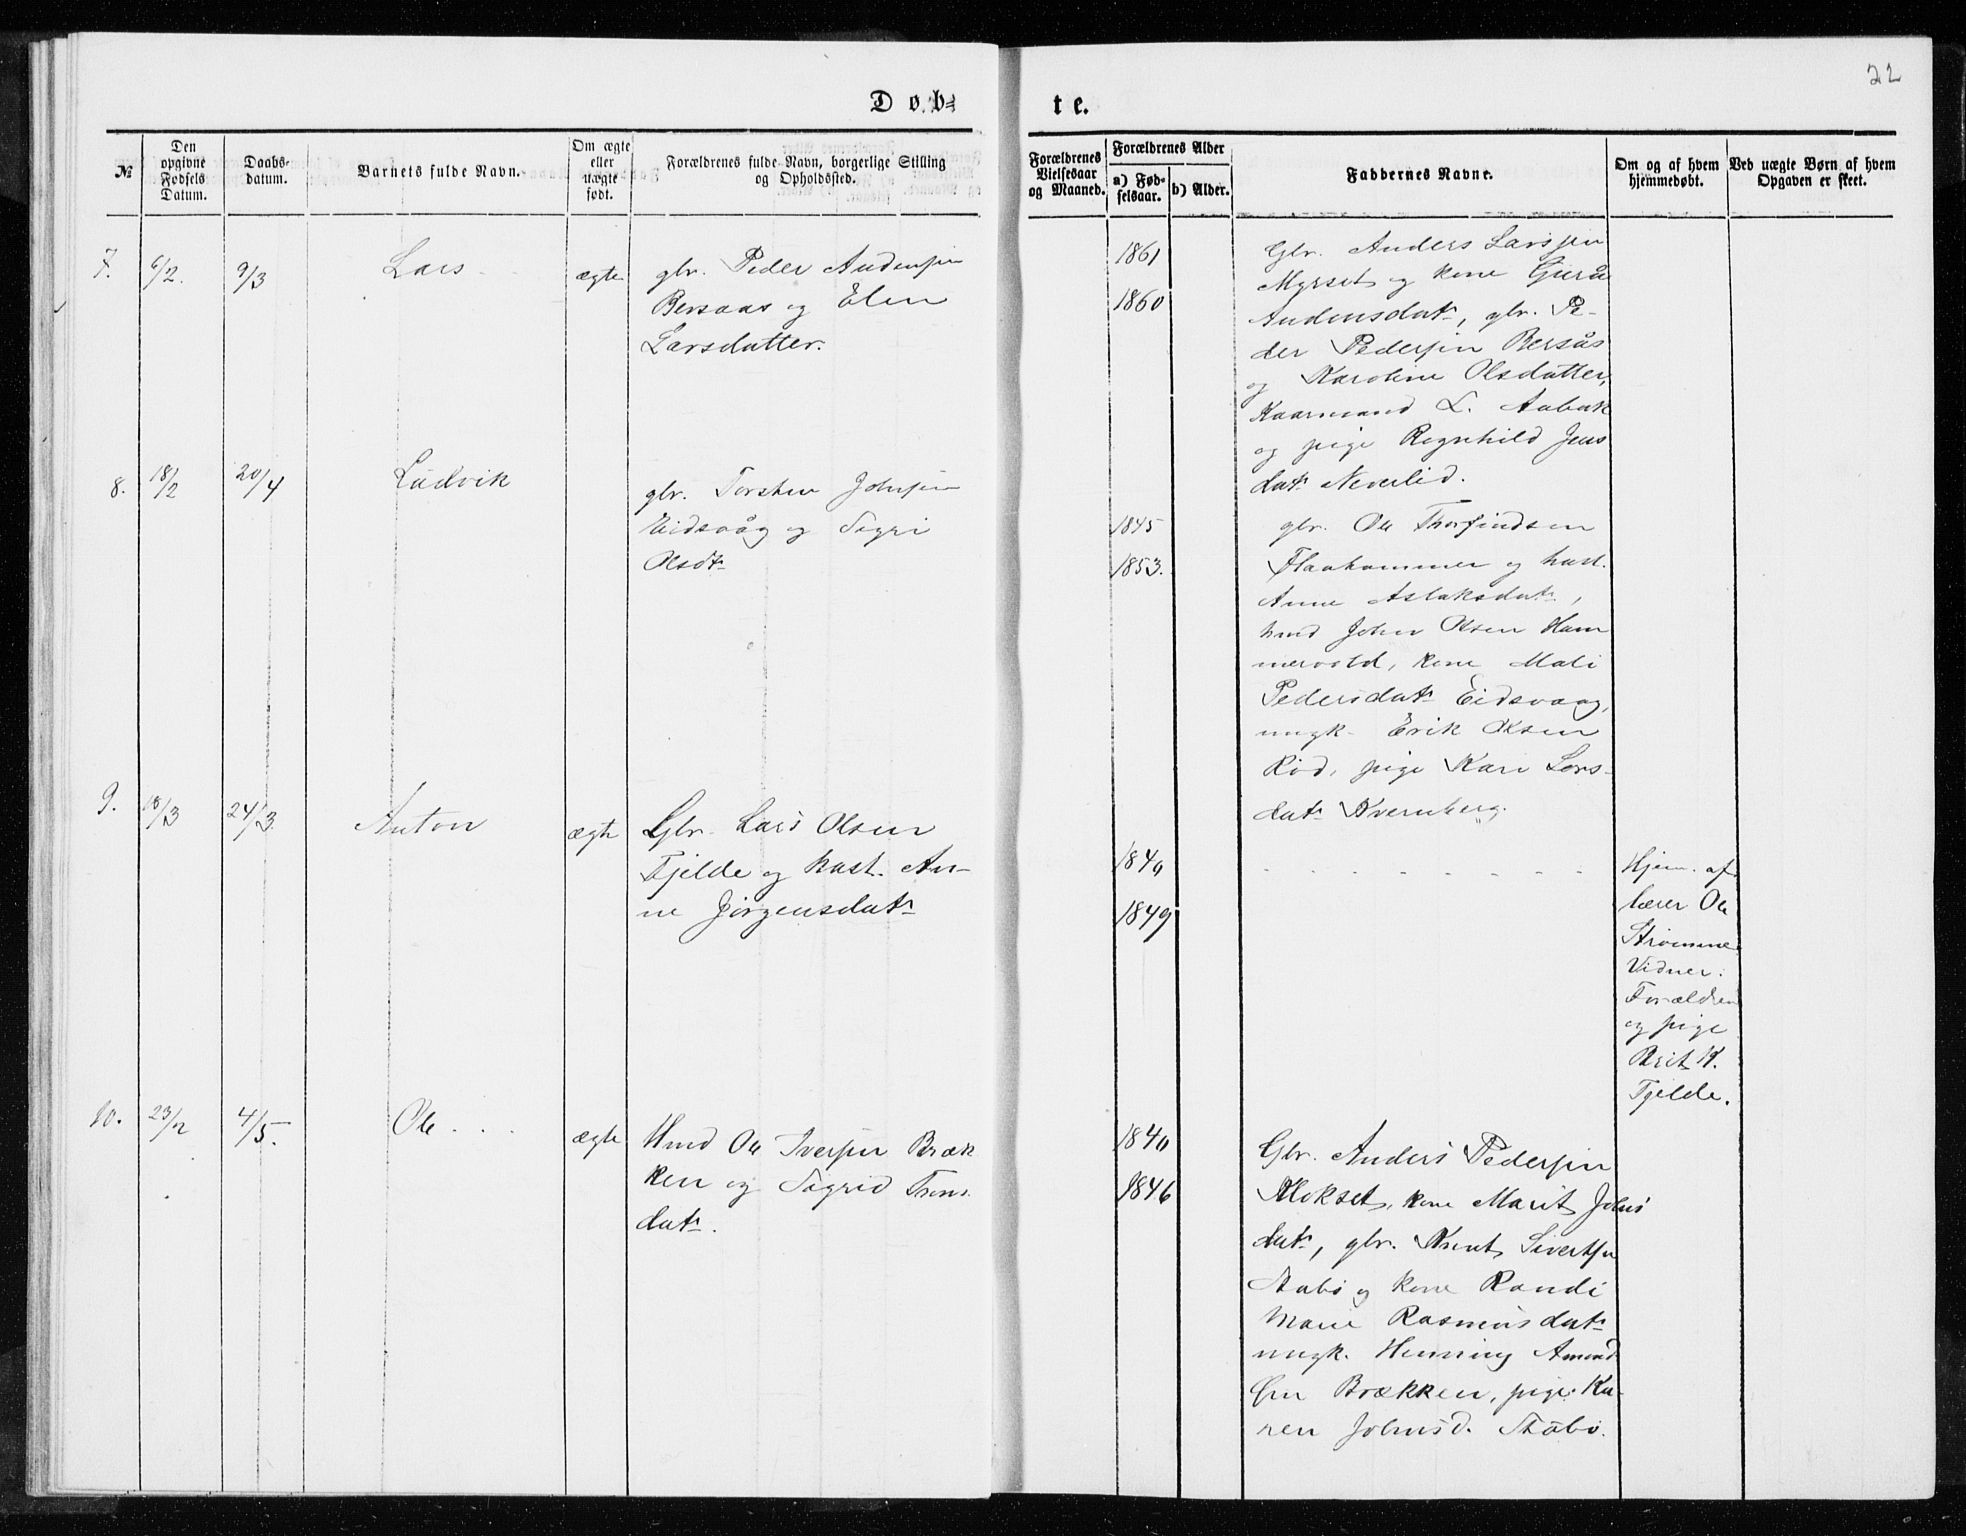 22
Døb-
te.
№
Den opgivne Fødsels Datum.
Daabs-datum.
Barnets fulde Navn.
Om ægte eller uægte født.
Forældrenes fulde Navn, borgerlige Stilling og Opholdssted.
Forældrenes Vielsesaar og Maaned.
Forældrenes Alder
a) Fød-selsaar.
b) Alder.
Faddernes Navne.
Om og af hvem hjemmedøbt.
Ved uægte Børn af hvem Opgaven er skeet.
7. 6/2. 9/3 Lars ægte
gbr. Peder Andersen
Bersaas og Elen
Larsdatter.
1861
1860
Gbr. Anders Larssen
Myrset og kone Gurå
Andersdatr, gbr. Pe-
der Pedersen Bersås
og Karoline Olsdatter,
Kaarmand L. Aabak
og pige Ragnhild Jens
datr Neverlid.
8. 18/2 20/4 Ludvik
gbr. Torsten Johnsen
Eidsvåg og Sigri
Olsdtr
1845
1853.
gbr. Ole Thorfindsen
Flaahammer og hust.
Anne Aslaksdatr,
hmd John Olsen Ham
mervold, kone Mali
Pedersdatr Eidsvaag,
ungk. Erik Olsen
Rød, pige Kari Lars-
datr Kvernberg.
9. 18/3 24/3 Anton ægte
Gbr. Lars Olsen
Tjelde og hust. An-
ne Jørgensdatr
1840
1849
- - - - - - - -
Hjem. af
lærer Ole
Strømme
Vidner:
Forældren
og pige
Brit K.
Tjelde.
10. 23/2 4/5. Ole . . . ægte
Hmd Ole Iversen Bræk
ken og Sigrid Trons
datr.
1840
1846
Gbr. Anders Pedersen
Klokset, kone Marit Johns
datr, gbr. Knut Sivertsen
Stabø og kone Randi
Marie Rasmusdatr
ungk. Henning Amund
sen Brækken, pige Ka-
ren Johnsd. Stabø.